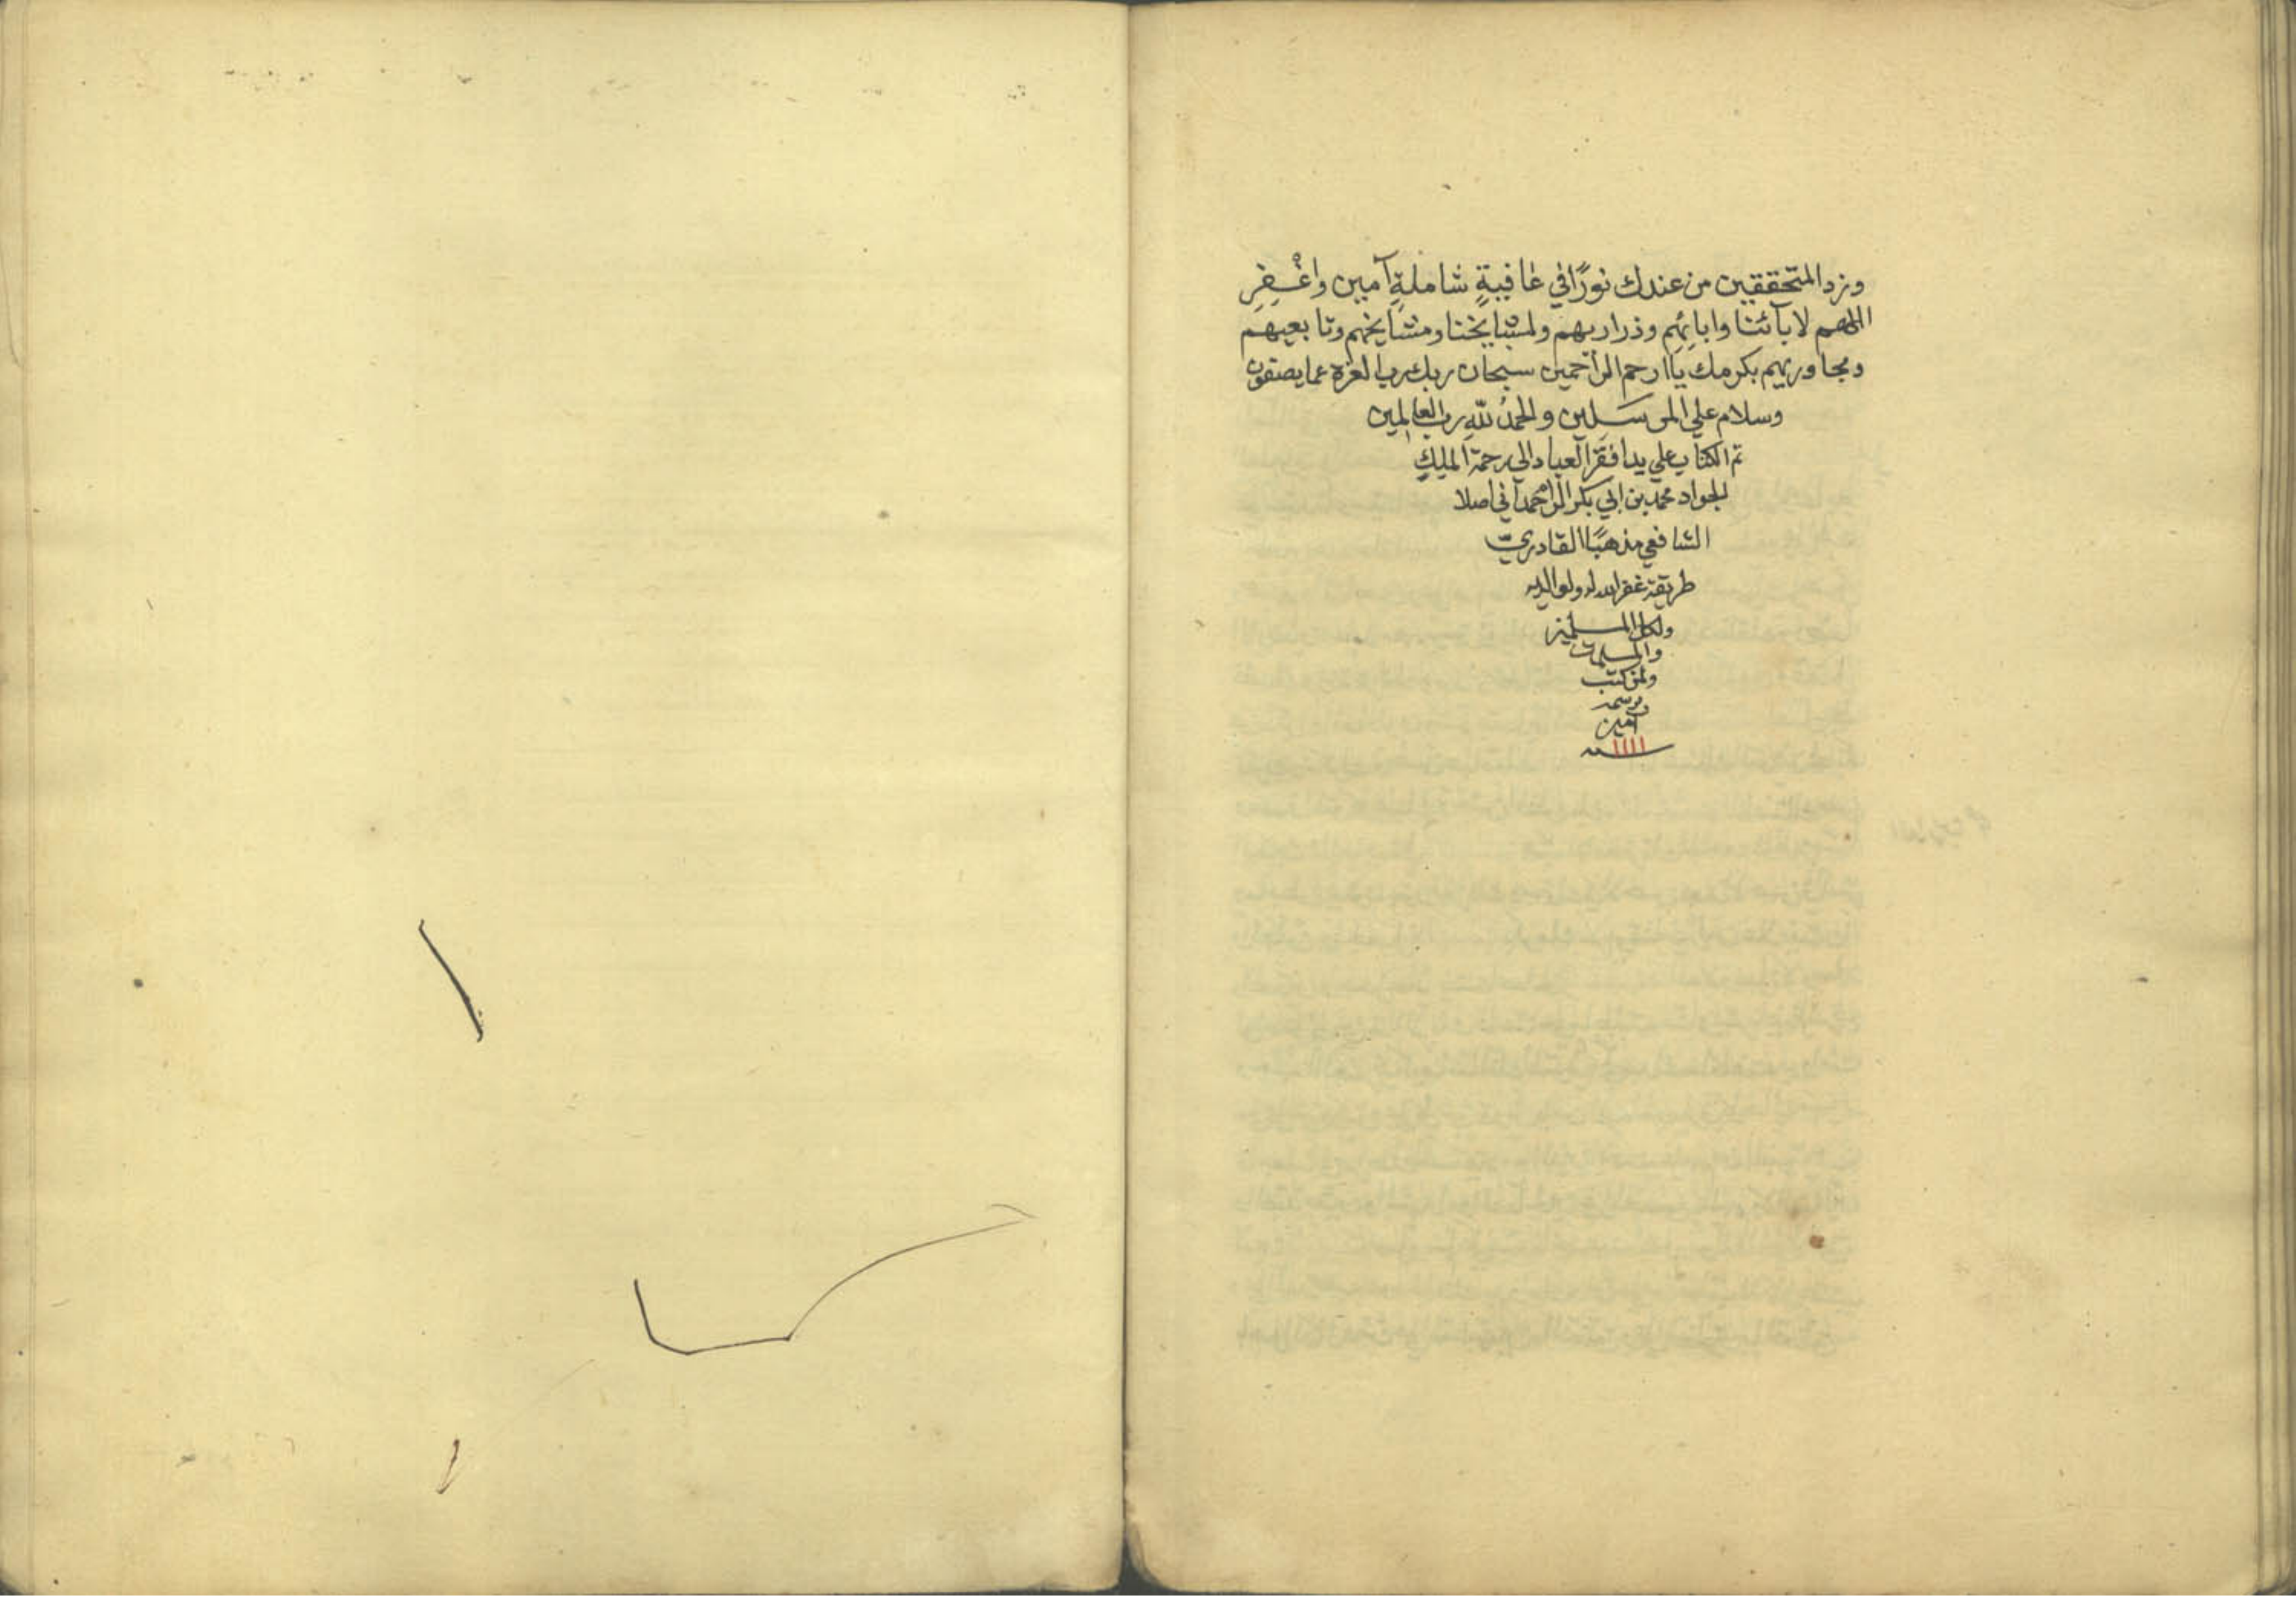 وزد المتحققين من عندك نورًا في عافيةٍ شاملةٍ آمين واغْفِرِ
اللهم لابآئنا وابائِهِم وذراريهم ولمشايخنا ومشايخهم وتابعيهم
ومجاوريهم بكرمك يا ارحم الراحمين سبحان ربك رب العزة عما يصفون
وسلام علي المرسَلين والحمدُ للّهِ رب العالمين
تم الكتاب علي يد افقر العباد الي رحمة المليك
الجواد محمد بن ابي بكر الراحمداني اصلا
الشافعي مذهبًا القادريّ
طريقة غفر الله له ولوالديه
ولكل المسلمين
والمسلمات
ولمن كتب
برسمه
آمين
١١١١ سنه